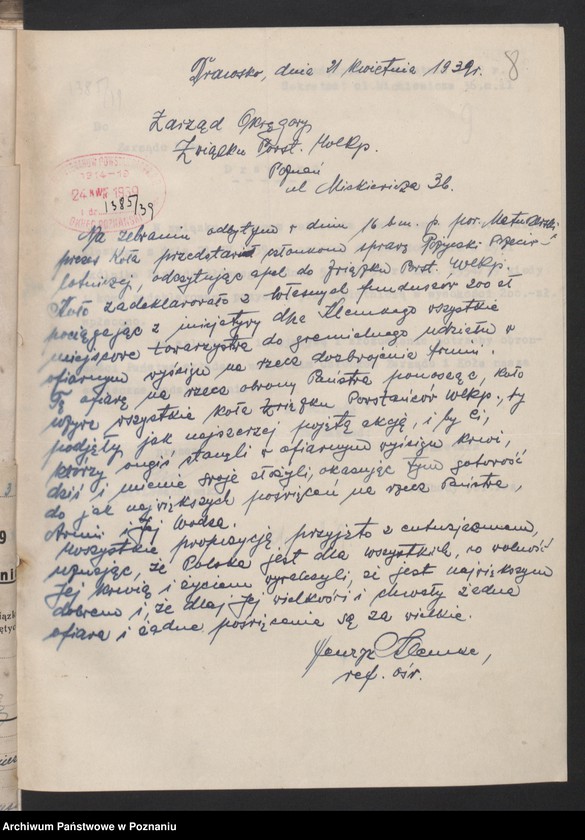 Drawsko, dnia 21 kwietnia 1939 r.
8
Zarząd Okręgowy
Związku Powst. Wlkp.
Poznań
ul. Mickiewicza 36.
1914-19
24 KWI 1939
1385/39
Na zebraniu odbytym w dniu 16 bm. p. por.
prezes Koła przedstawił członkom sprawę Pożyczki Przeciw-
lotniczej, odczytując apel do Związku Powst. Wlkp.
Koło zadeklarowało z własnych funduszów 200 zł
pociągając z inicjatywy dha Klemkego wszystkie
miejscowe towarzystwa do gremialnego udziału w
ofiarnym wyścigu na rzecz dozbrojenia Armii.
Tą ofiarę na rzecz obrony Państwa ponosząc, Koło
wzywa wszystkie Koła Związku Powstańców Wlkp., by
podjęły jak najszerzej pojętą akcję, i by Ci,
którzy ongiś stanęli w ofiarnym wyścigu krwi,
dziś i mienie swoje złożyli, okazując tym gotowość
do jak największych poświęceń na rzecz Państwa,
Armii i Jej Wodza.
Wszystkie propozycję przyjęto z entuzjazmem,
uznając, że Polska jest dla wszystkich, co wolność
Jej krwią i życiem wywalczyli, si jest największym
dobrem i, że dla Jej wielkości i chwały żadna
ofiara i żadne poświęcenie są za wielkie.
Henryk Klemke,
ref. ośw.
Archiwum Państwowe w Poznaniu